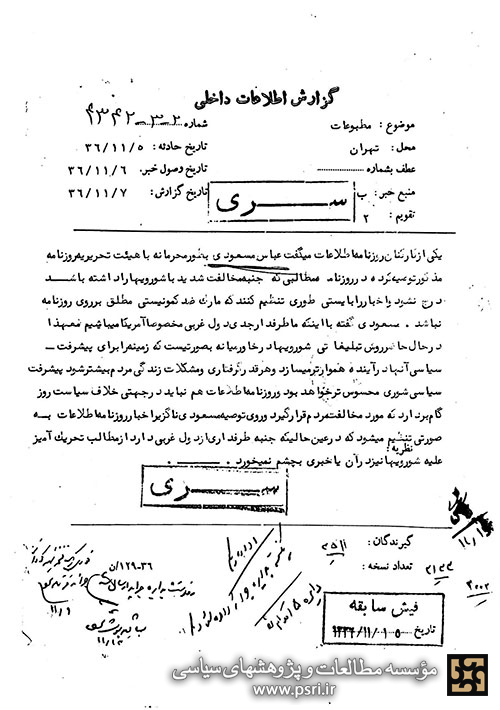 گزارش اطلاعات داخلی
موضوع: مطبوعات
شماره ۴۳۴۲-۳-۲
محل: تهران
تاریخ حادثه: ۳۶/۱۱/۵
عطف بشماره
تاریخ وصول خبر: ۳۶/۱۱/۶
منبع خبر: ب
تاریخ گزارش: ۳۶/۱۱/۷
تقویم: ۲
سری
یکی از کارکنان روزنامه اطلاعات میگفت عباس مسعودی بطور محرمانه با هیئت تحریریه روزنامه
مذکور توصیه کرده در روزنامه مطالبی که جنبه مخالفت شدید با شورویها را داشته باشد
درج نشود و اخبار را بایستی طوری تنظیم کنند که مارک ضد کمونیستی مطلق بر روی روزنامه
نباشد. مسعودی گفته با اینکه ما طرفدار جدی دول غربی مخصوصا آمریکا میباشیم معهذا
در حال حاضر روش تبلیغاتی شورویها در خاورمیانه بصورتیست که زمینه برای پیشرفت
سیاسی آنها در آینده هموارتر میسازد و هر قدر گرفتاری و مشکلات زندگی مردم بیشتر شود پیشرفت
سیاسی شوروی محسوس تر خواهد بود و روزنامه اطلاعات هم نباید در جهتی خلاف سیاست روز
گام بردارد که مورد مخالفت مردم قرار گیرد و روی توصیه مسعودی ناگزیر اخبار روزنامه اطلاعات به
صورتی تنظیم میشود که در عین حالیکه جنبه طرفداری از دول غربی دارد از مطالب تحریک آمیز
نظریه:
علیه شورویها نیز در آن یا خبری بچشم نمیخورد.
سری
گیرندگان:
تعداد نسخه:
۵/۱۲۹-۳۶
فیش سابقه
تاریخ ۱۳۳۶/۱۱/۰۵
مؤسسه مطالعات و پژوهشهای سیاسی
www.psri.ir